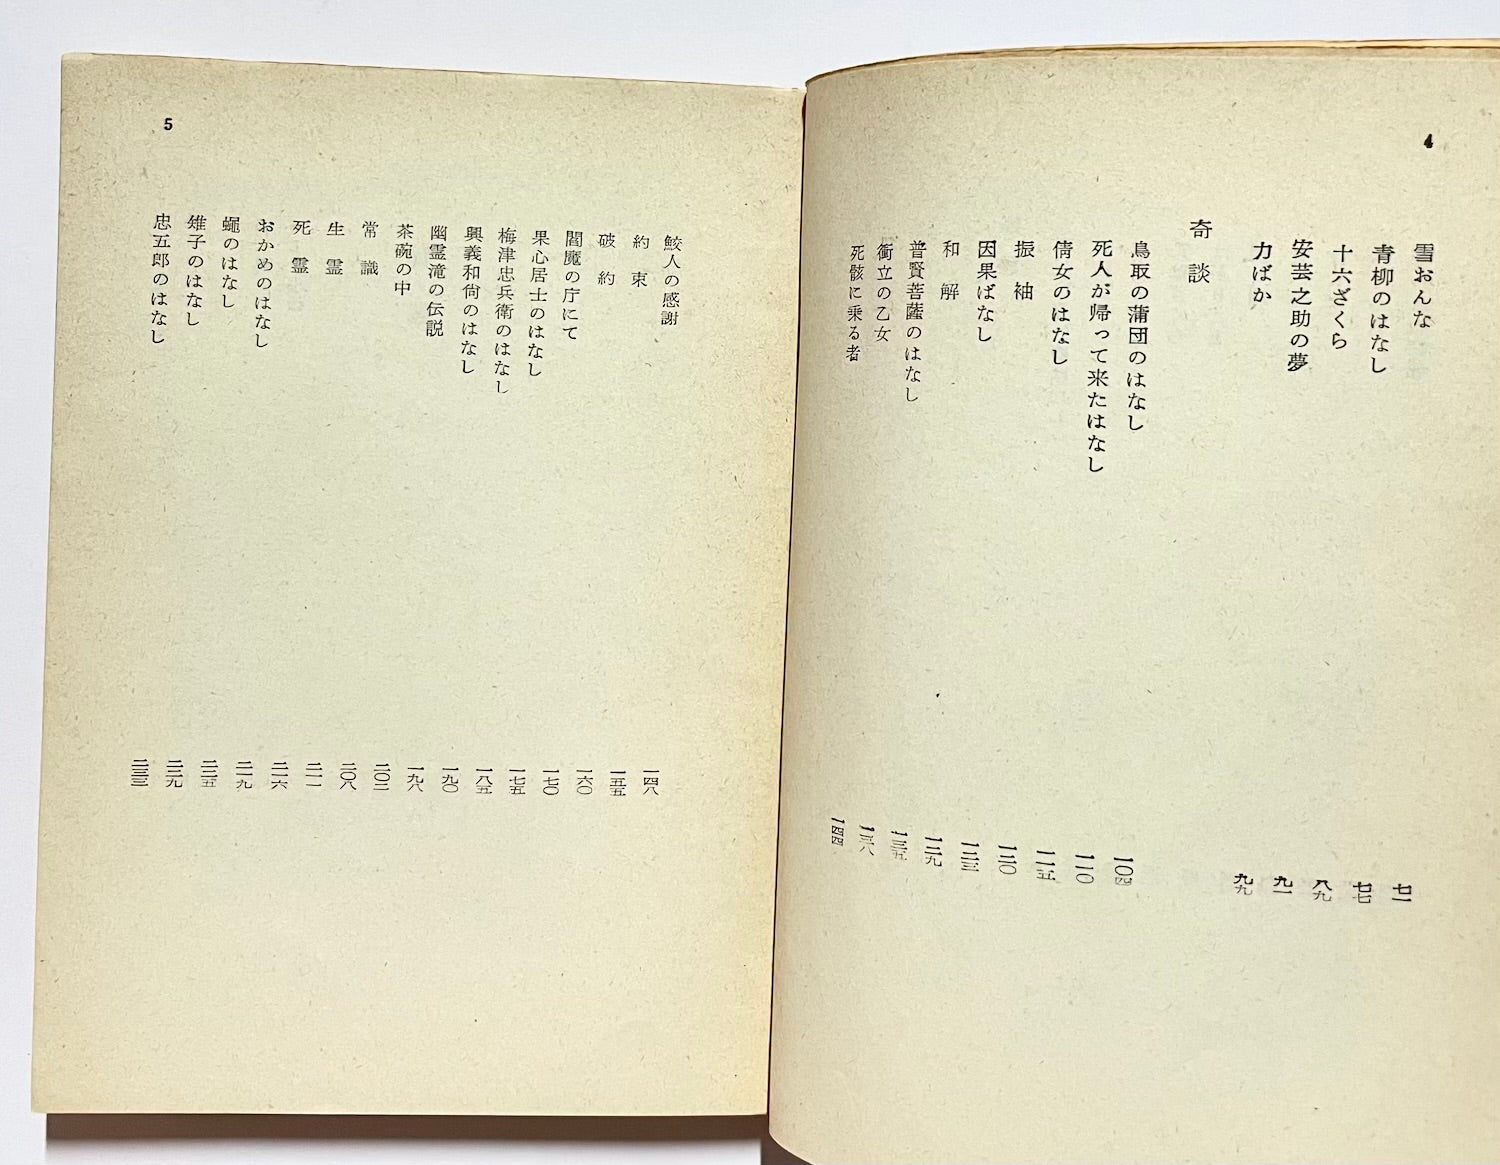 4
雪おんな 七一
青柳のはなし 七七
十六ざくら 八九
安芸之助の夢 九一
力ばか 九九
奇談
鳥取の蒲団のはなし 一〇四
死人が帰って来たはなし 一一〇
倩女のはなし 一一五
振袖 一二〇
因果ばなし 一二三
和解 一二九
普賢菩薩のはなし 一三五
衝立の乙女 一三八
死骸に乗る者 一四四
5
鮫人の感謝 一四八
約束 一五五
破約 一六〇
閻魔の庁にて 一七〇
果心居士のはなし 一七五
梅津忠兵衛のはなし 一八五
興義和尚のはなし 一九〇
幽霊滝の伝説 一九八
茶碗の中 二〇三
常識 二〇八
生霊 二一一
死霊 二一六
おかめのはなし 二一九
蠅のはなし 二二五
雉子のはなし 二二九
忠五郎のはなし 二三三